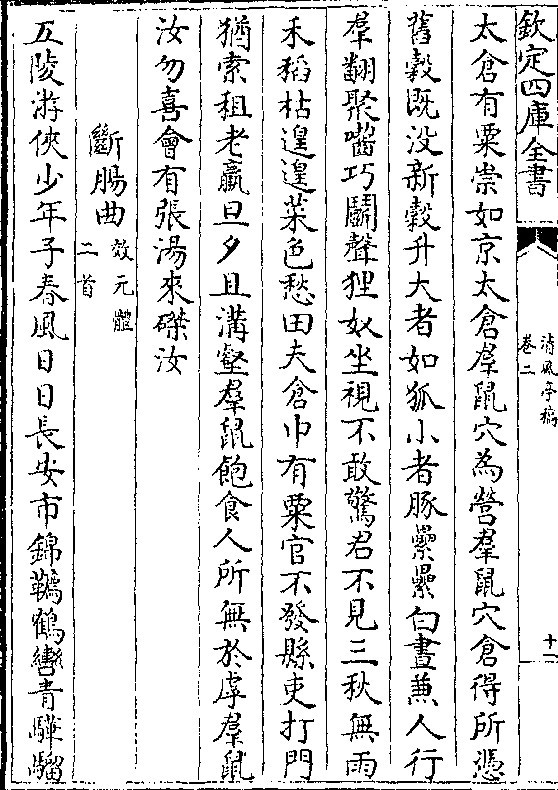 欽定四庫全書
清風亭稿
卷二
十一
太倉有粟崇如京太倉羣鼠穴為營羣鼠穴倉得所憑
舊穀既没新穀升大者如狐小者豚纍纍白晝兼人行
羣翻聚嚙巧鬭聲狸奴坐視不敢驚君不見三秋無雨
禾稻枯遑遑菜色愁田夫倉中有粟官不發縣吏打門
猶索租老羸旦夕且溝壑羣鼠飽食人所無於虖羣鼠
汝勿喜會有張湯來磔汝
斷腸曲
效元體
二首
五陵游俠少年子春風日日長安市錦韉鶴轡青驊騮